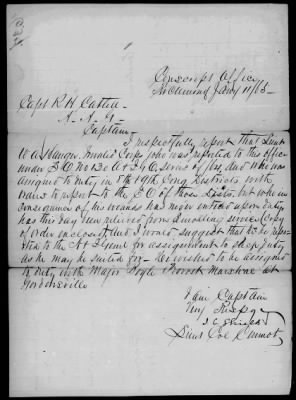 Conscript Office
Richmond Jany 11/65
Capt R. H. Catlett
A. A. G.
Captain
I respectfully report that Lieut
Invalid Corps who was reported to this office
under S.O. No 130 A & I G O series of /64, and who was
assigned to duty in the 19th Cong. District with
orders to report to the E.O. of those Dists. but who in
consequence of his wounds has never entered upon duty
has this day been relieved from enrolling service (Copy
of order enclosed) and I would suggest that he be repor-
ted to the A & I Genl for assignment to such duty
as he may be suited for. He wishes to be assigned
to duty with Major Boyle Provost Marshal at
Gordonsville
I am Captain
Very Resp
J C Shields
Lieut Col Commdt